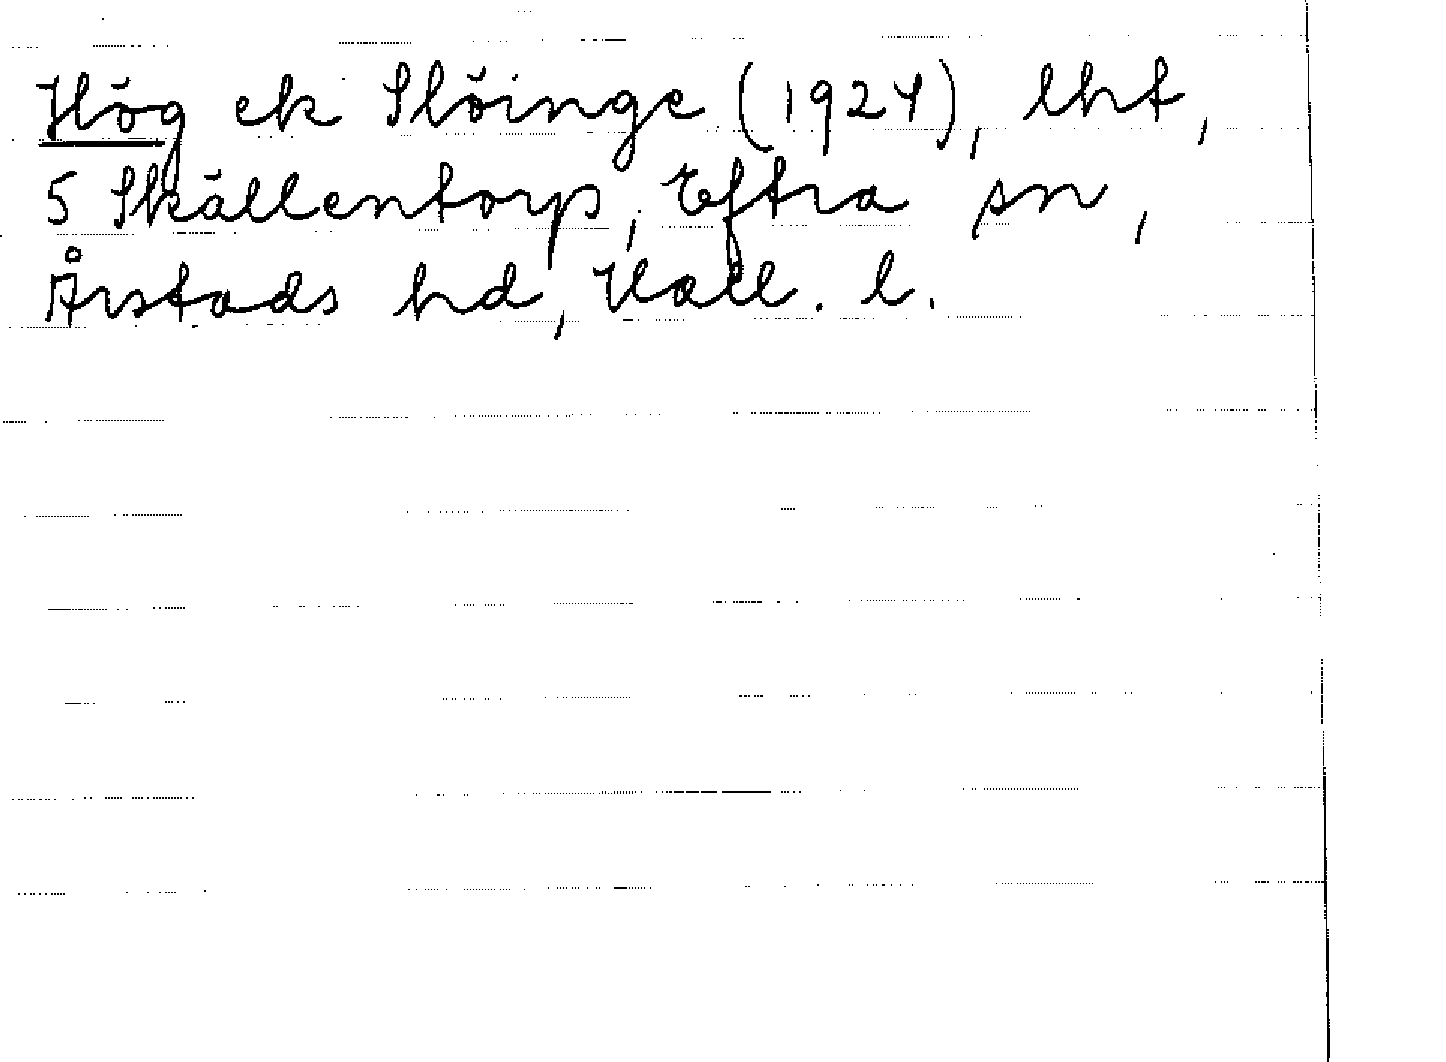 Hög ek Slöinge (1924), lht,
5 Skällentorp, Eftra sn,
Årstads hd, Hall. l.